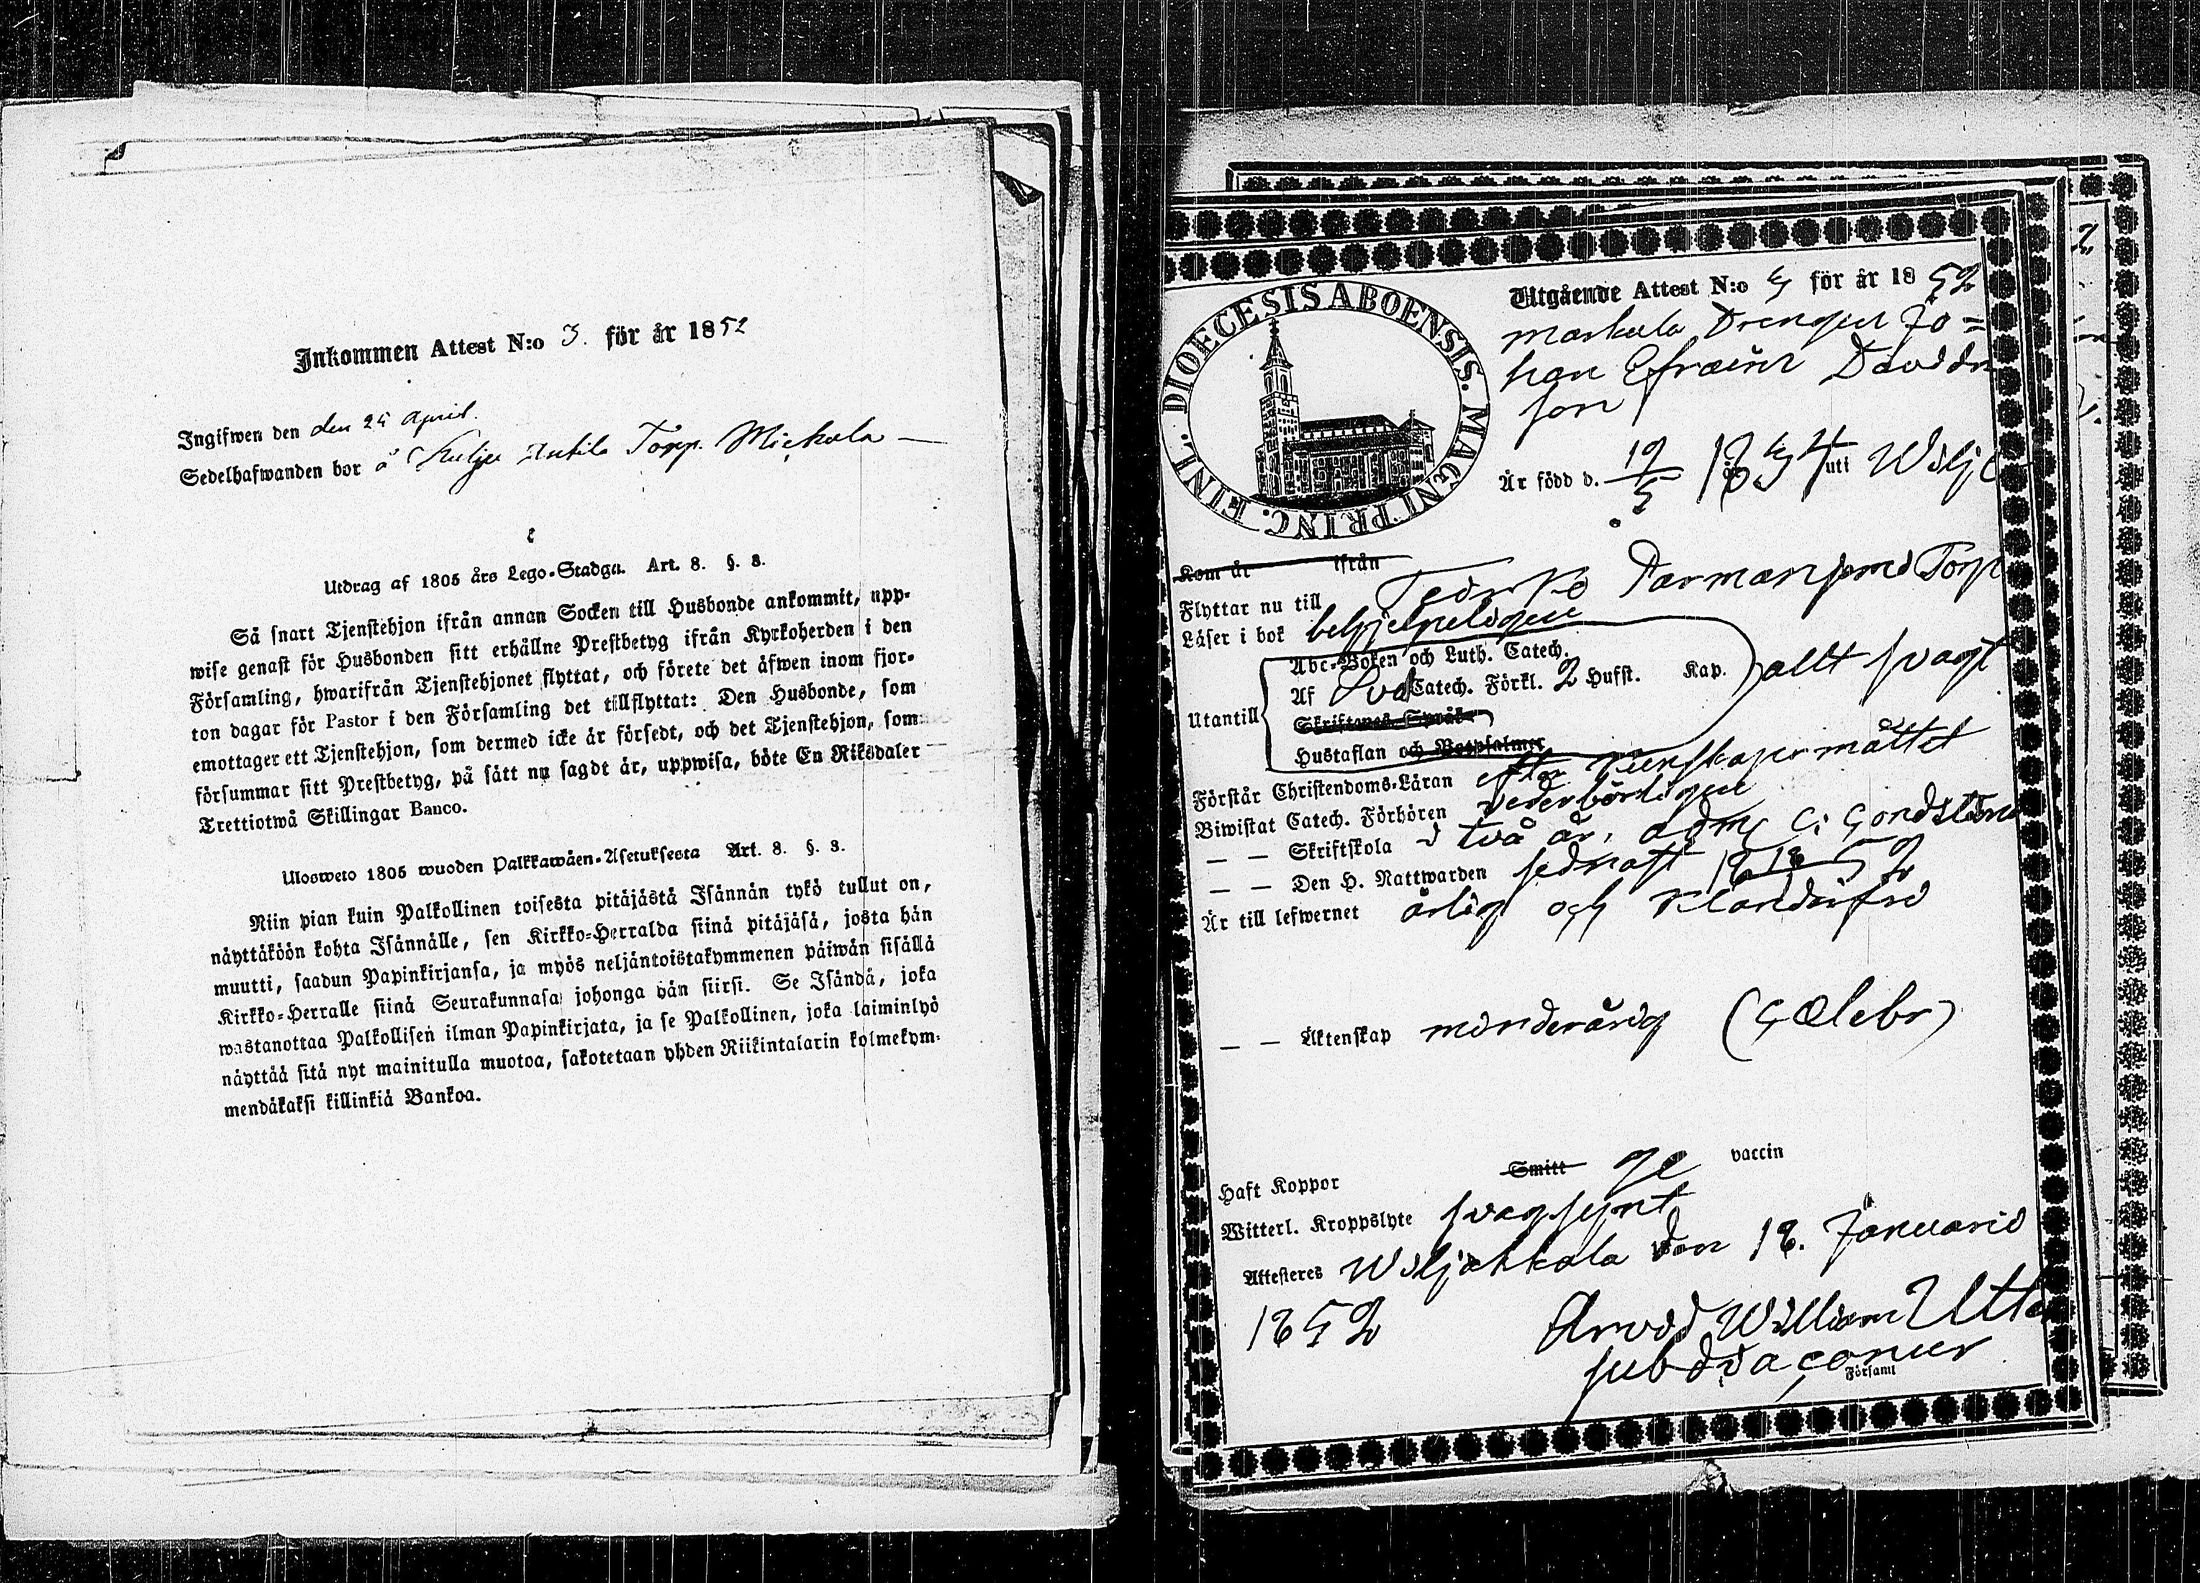 Inkommen Attest N:o 3. för år 1852
Ingifwen den den 25 April.
Sedelhafwanden bor å Kulju Anttila Torp. Mickola
Utdrag af 1805 års Lego-Stadga. Art. 8. §. 3.
Så snart Tjenstehjon ifrån annan Socken till Husbonde ankommit, upp-
wise genast för Husbonden sitt erhållne Prestbetyg ifrån Kyrkoherden i den
Församling, hwarifrån Tjenstehjonet flyttat, och förete det äfwen inom fjor-
ton dagar för Pastor i den Församling det tillflyttat: Den Husbonde, som
emottager ett Tjenstehjon, som dermed icke är försedt, och det Tjenstehjon, som
försummar sitt Prestbetyg, på sätt nu sagdt är, uppwisa, böte En Riksdaler
Trettiotwå Skillingar Banco.
Ulosweto 1805 wuoden Palkkawäen-Asetuksesta Art. 8. §. 3.
Niin pian kuin Palkollinen toisesta pitäjästä Isännän tykö tullut on,
näyttäköön kohta Isännälle, sen Kirkko-Herralda siinä pitäjäsä, josta hän
muutti, saadun Papinkirjansa, ja myös neljäntoistakymmenen päiwän sisällä
Kirkko-Herralle siinä Seurakunnasa johonga hän siirsi. Se Isändä, joka
wastanottaa Palkollisen ilman Papinkirjata, ja se Palkollinen, joka laiminlyö
näyttää sitä nyt mainitulla muotoa, sakotetaan yhden Riikintalarin kolmekym-
mendäkaksi killinkiä Bankoa.
DIOECESIS ABOENSIS. MAGNI PRINC. FINL.
Utgående Attest N:o 5 för år 1852
Markula Drengen Jo=
han Efraim Davids
son
Är född d. 19/5 1834 uti Wilj
Kom år ifrån
Flyttar nu till Torp
Läser i bok behjelpeligen
Abc-Boken och Luth. Catech.
Utantill Af Sved Catech. Förkl. 2 Hufst. Kap. allt svagt
Skriftenes Språk
Hustaflan och Botpsalmer
Förstår Christendoms-Läran efter kunskapsmåttet
Biwistat Catech. Förhören vederbörligen
— — Skriftskola i två år, adm.
— — Den H. Nattwarden sednast 52
Är till lefwernet ärlig och klanderfri
— — Äktenskap minderårig (Cælebs)
Haft Koppor Smitt ge vaccin
Witterl. Kroppslyte svagsynt
Attesteres Wiljakkala den 18. Januarii
1852 Arvid William
subdiaconus
Församl